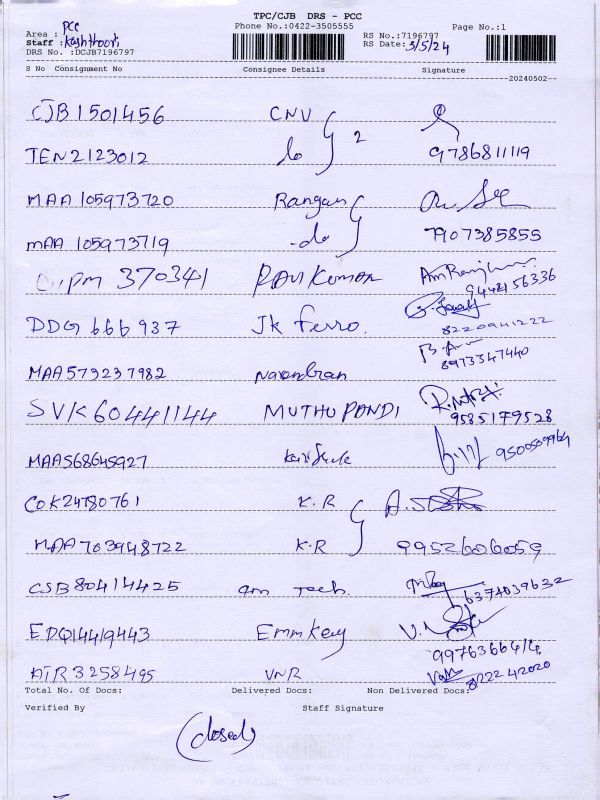 TPC/CJB DRS - PCC
Phone No.:0422-3505555 Page No.:1
Area : PCC
Staff : Kashthoori
DRS No. :DCJB7196797
RS No.:7196797
RS Date: 3/5/24
S No Consignment No Consignee Details Signature
20240502
CJB1501456 CNV
TEN2123012 do 2 9786811119
MAA 105973720 Rangan
MAA 105973719 -do 7907385855
370341 RAVI KUMAR
9442156336
DDG 666 937 Jk Ferro. 8220941222
MAA573237982 Narendran 8973347440
SVK60441144 MUTHU PANDI
9585179528
MAA568645927
COK24780761 K.R
MAA703948722 K.R 9952606059
CSB80414425 am Tech. 6374039632
EDQ14419443 Emmkay
ATR3258495 VNR 8222422020
Total No. Of Docs: Delivered Docs: Non Delivered Docs:
Verified By Staff Signature
(closed)